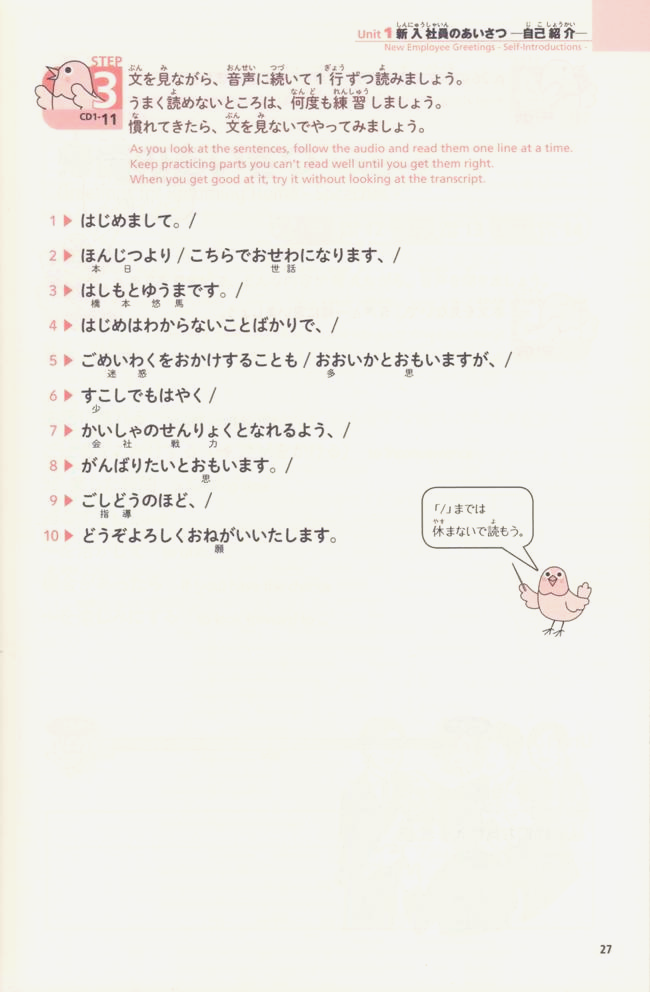 Unit 1 新入社員のあいさつ ―自己紹介―
しんにゅうしゃいん じこしょうかい
New Employee Greetings - Self-Introductions -
STEP
3
CD1-11
ぶん み おんせい つづ ぎょう よ
文を見ながら、音声に続いて1行ずつ読みましょう。
よ なんど れんしゅう
うまく読めないところは、何度も練習しましょう。
な ぶん み
慣れてきたら、文を見ないでやってみましょう。
As you look at the sentences, follow the audio and read them one line at a time.
Keep practicing parts you can't read well until you get them right.
When you get good at it, try it without looking at the transcript.
1 ▶ はじめまして。/
2 ▶ ほんじつより / こちらでおせわになります、/
本日 世話
3 ▶ はしもとゆうまです。/
橋本悠馬
4 ▶ はじめはわからないことばかりで、/
5 ▶ ごめいわくをおかけすることも / おおいかとおもいますが、/
迷惑 多 思
6 ▶ すこしでもはやく /
少
7 ▶ かいしゃのせんりょくとなれるよう、/
会社 戦力
8 ▶ がんばりたいとおもいます。/
思
9 ▶ ごしどうのほど、/
指導
10 ▶ どうぞよろしくおねがいいたします。
願
「/」までは
やす よ
休まないで読もう。
27